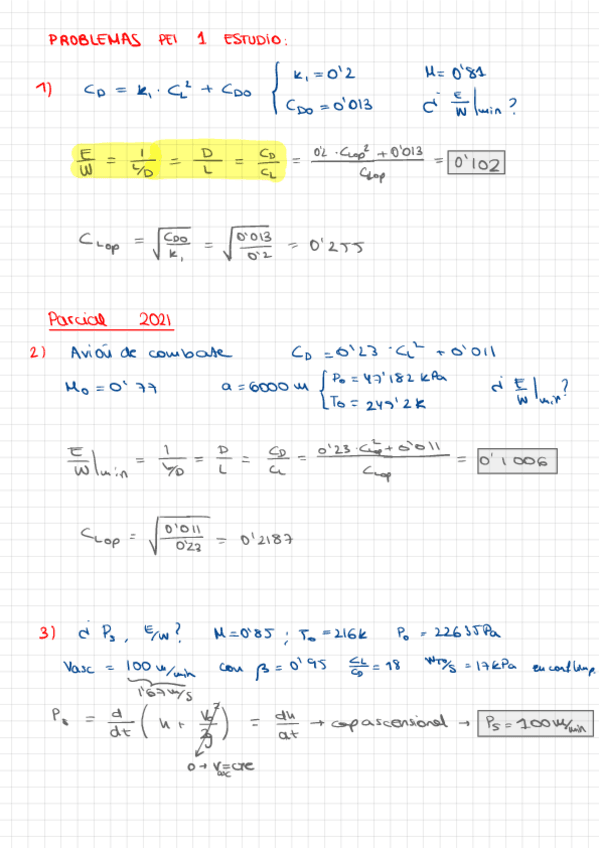 PROBLEMAS PEI 1 ESTUDIO:
1) C_D = k₁ · C_L² + C_D0 { k₁ = 0'2 M = 0'81
C_D0 = 0'013 ¿ E/W |min ?
E/W = 1/(L/D) = D/L = C_D/C_L = (0'2 · C_Lop² + 0'013)/C_Lop = 0'102
C_Lop = √(C_D0/k₁) = √(0'013/0'2) = 0'255
Parcial 2021
2) Avión de combate C_D = 0'23 · C_L² + 0'011
M₀ = 0'77 a = 6000 m { P₀ = 47'182 kPa ¿ E/W |min ?
T₀ = 249'2 K
E/W |min = 1/(L/D) = D/L = C_D/C_L = (0'23 · C_Lop² + 0'011)/C_Lop = 0'1006
C_Lop = √(0'011/0'23) = 0'2187
3) ¿ P_s, E/W ? M = 0'85 ; T₀ = 216 k P₀ = 22635 Pa
Vasc = 100 m/min con β = 0'95 C_L/C_D = 18 W_TO/S = 17 kPa
1'67 m/s
P_s = d/dt ( h + V₀²/2g ) = dh/dt → cap ascensional → P_s = 100 m/min
0 → V_asc = cte